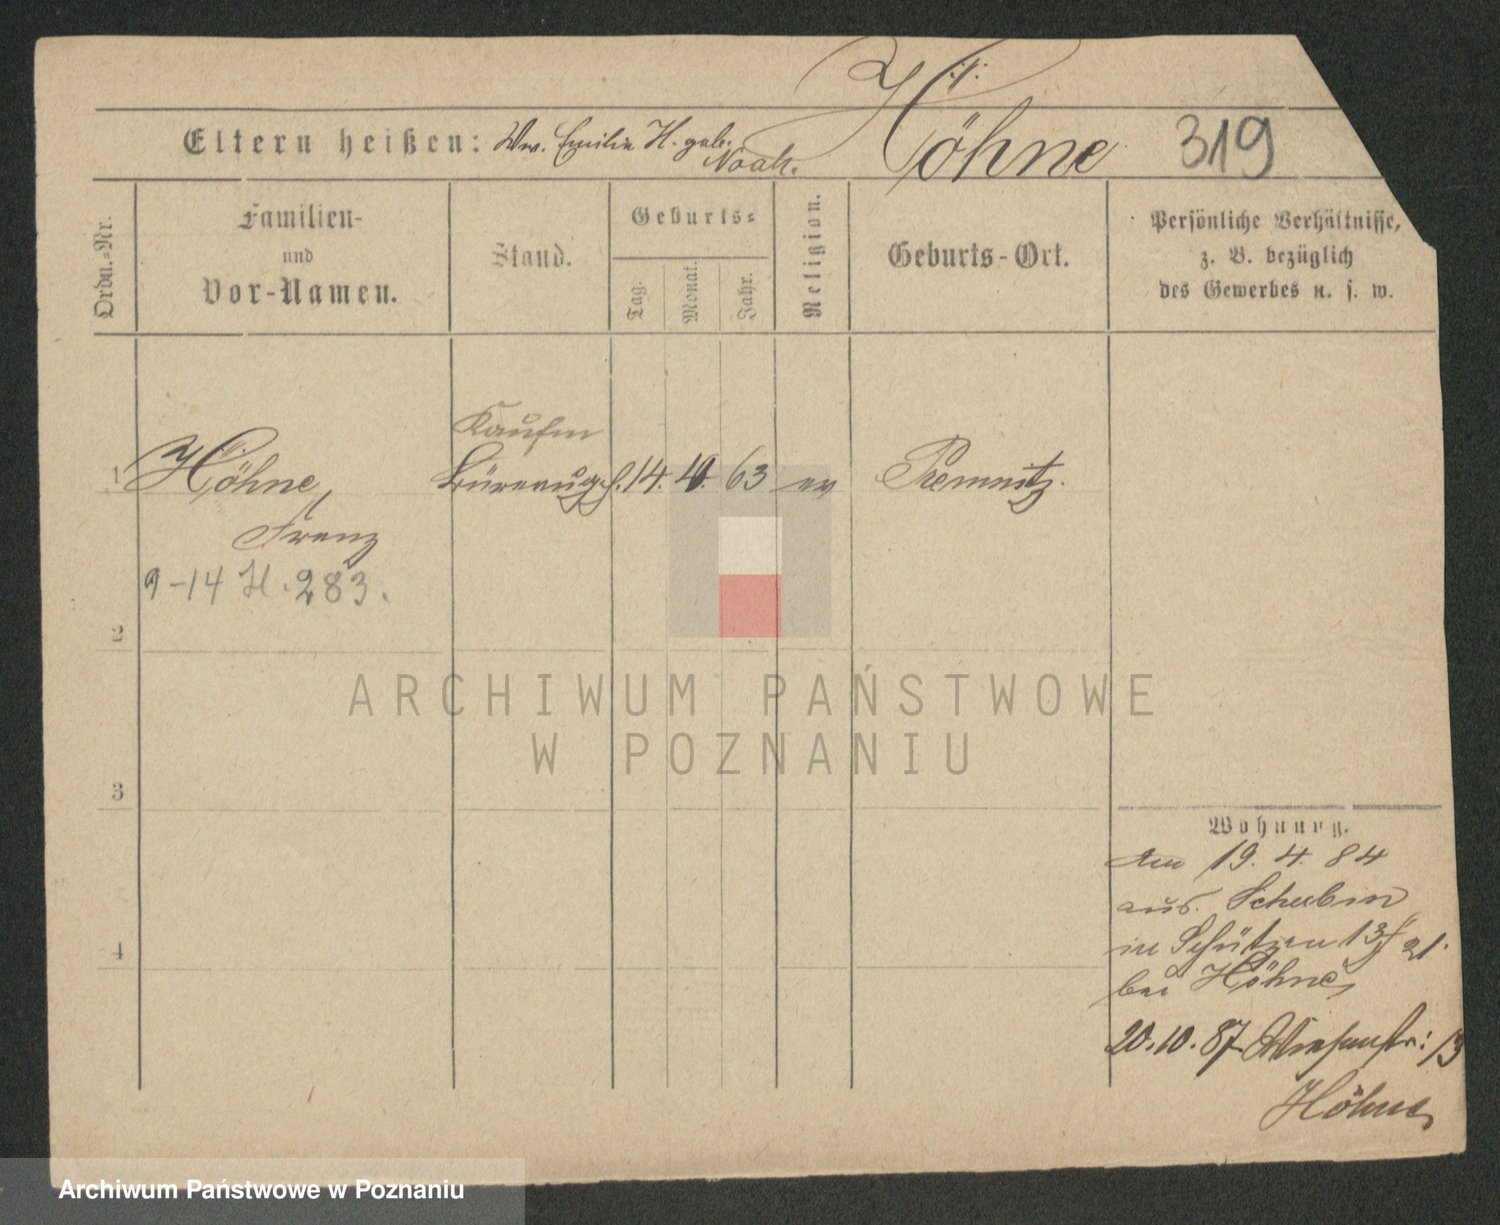 Höhne 319
Eltern heißen: Ww. Emilie H. geb.
Noak.
Ordn.-Nr.
Familien-
und
Vor-Namen.
Stand.
Geburts-
Tag.
Monat.
Jahr.
Religion.
Geburts-Ort.
Persönliche Verhältnisse,
z. B. bezüglich
des Gewerbes u. s. w.
Kaufm
1 Höhne, Büreaugeh. 14. 10. 63 ev Premnitz.
Franz
9-14 H. 283.
2
3
4
ARCHIWUM PAŃSTWOWE
W POZNANIU
Wohnung.
Am 19. 4. 84
aus. Schubin
in Schützen 13/21.
bei Höhne
20.10.87 Wiesenstr: 13
Höhne
Archiwum Państwowe w Poznaniu